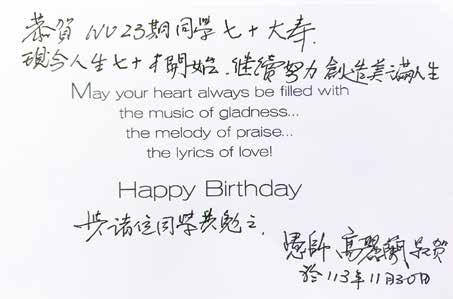 恭賀 NU23期同學七十大壽.
現今人生七十才開始.继續努力創造美滿人生
May your heart always be filled with
the music of gladness...
the melody of praise...
the lyrics of love!
Happy Birthday
與諸位同學共勉之.
恩師 高 蘭 敬賀
於113年11月30日